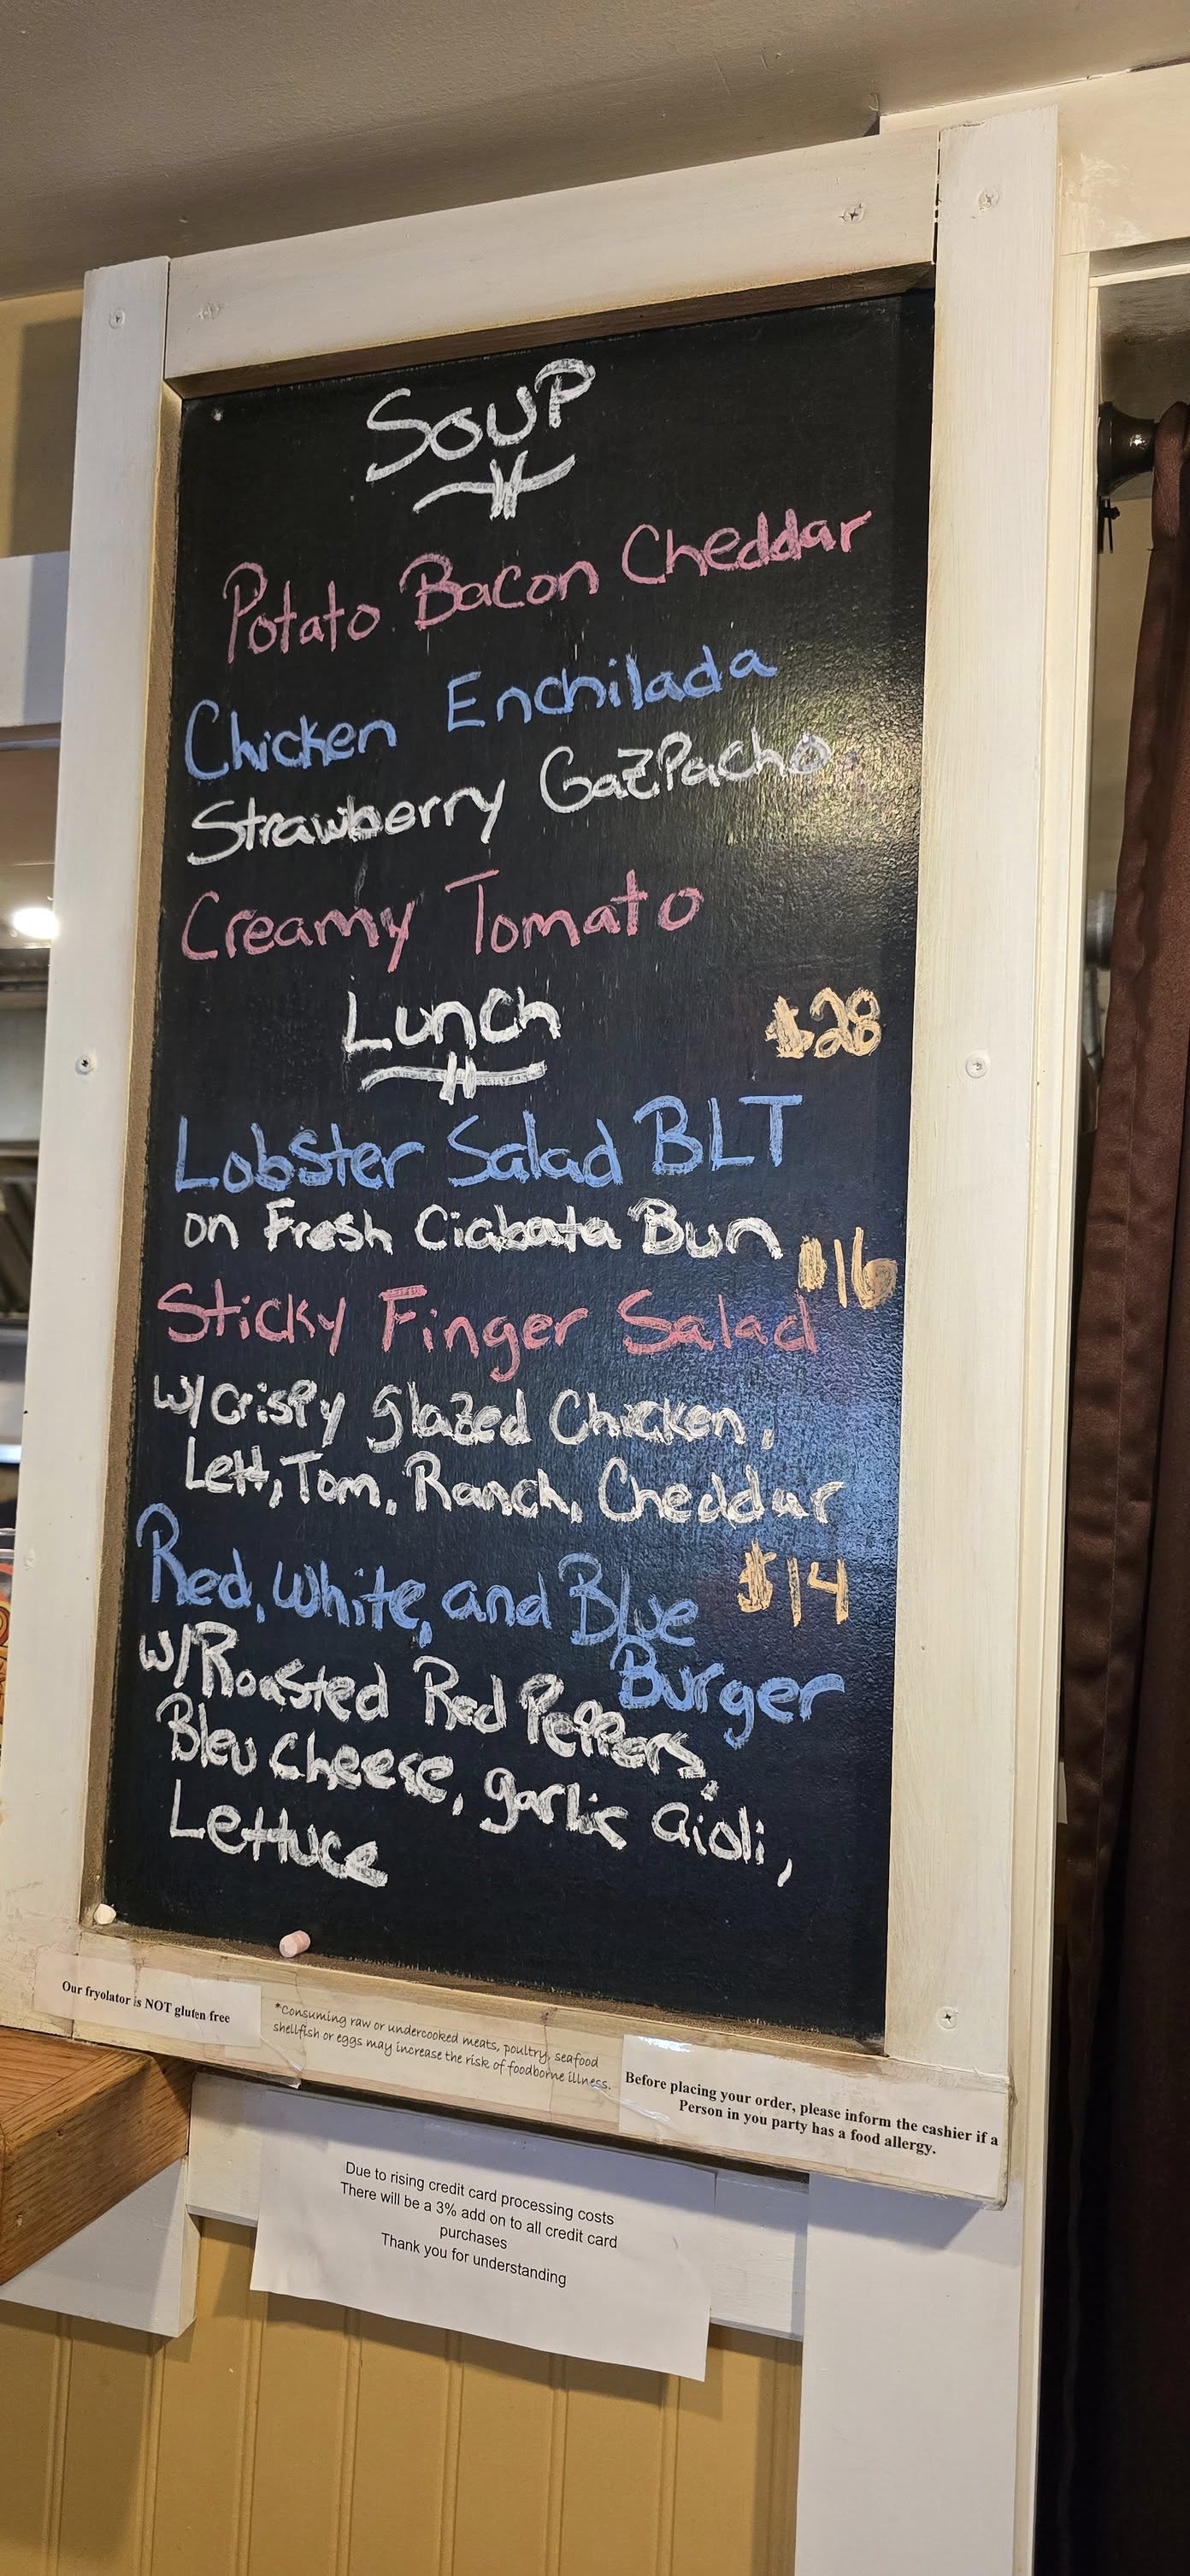 SOUP
Potato Bacon Cheddar
Chicken Enchilada
Strawberry GazPacho
Creamy Tomato
Lunch
$28
Lobster Salad BLT
on Fresh Ciabata Bun
$16
Sticky Finger Salad
w/crispy glazed Chicken,
Lett, Tom, Ranch, Cheddar
Red, white, and Blue
$14
Burger
w/Roasted Red Peppers,
Bleu Cheese, garlic aioli,
Lettuce
Our fryolator is NOT gluten free
*Consuming raw or undercooked meats, poultry, seafood
shellfish or eggs may increase the risk of foodborne illness.
Before placing your order, please inform the cashier if a
Person in you party has a food allergy.
Due to rising credit card processing costs
There will be a 3% add on to all credit card
purchases
Thank you for understanding